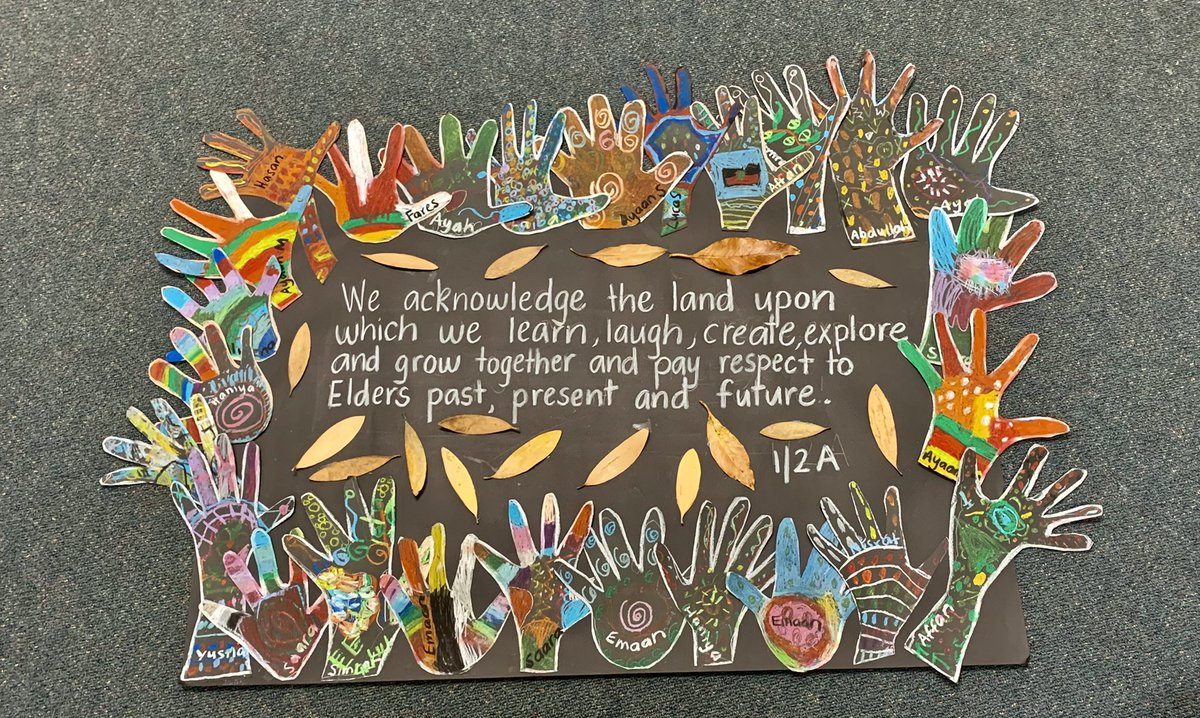 Hasan
Fares
Ayah
Ayaans
Affan
Abdullah
We acknowledge the land upon
which we learn, laugh, create, explore
and grow together and pay respect to
Elders past, present and future.
1/2A
Haniya
Ayaan
Yusra
Saara
Emaan
Saara
Emaan
Haniya
Emaan
Affan